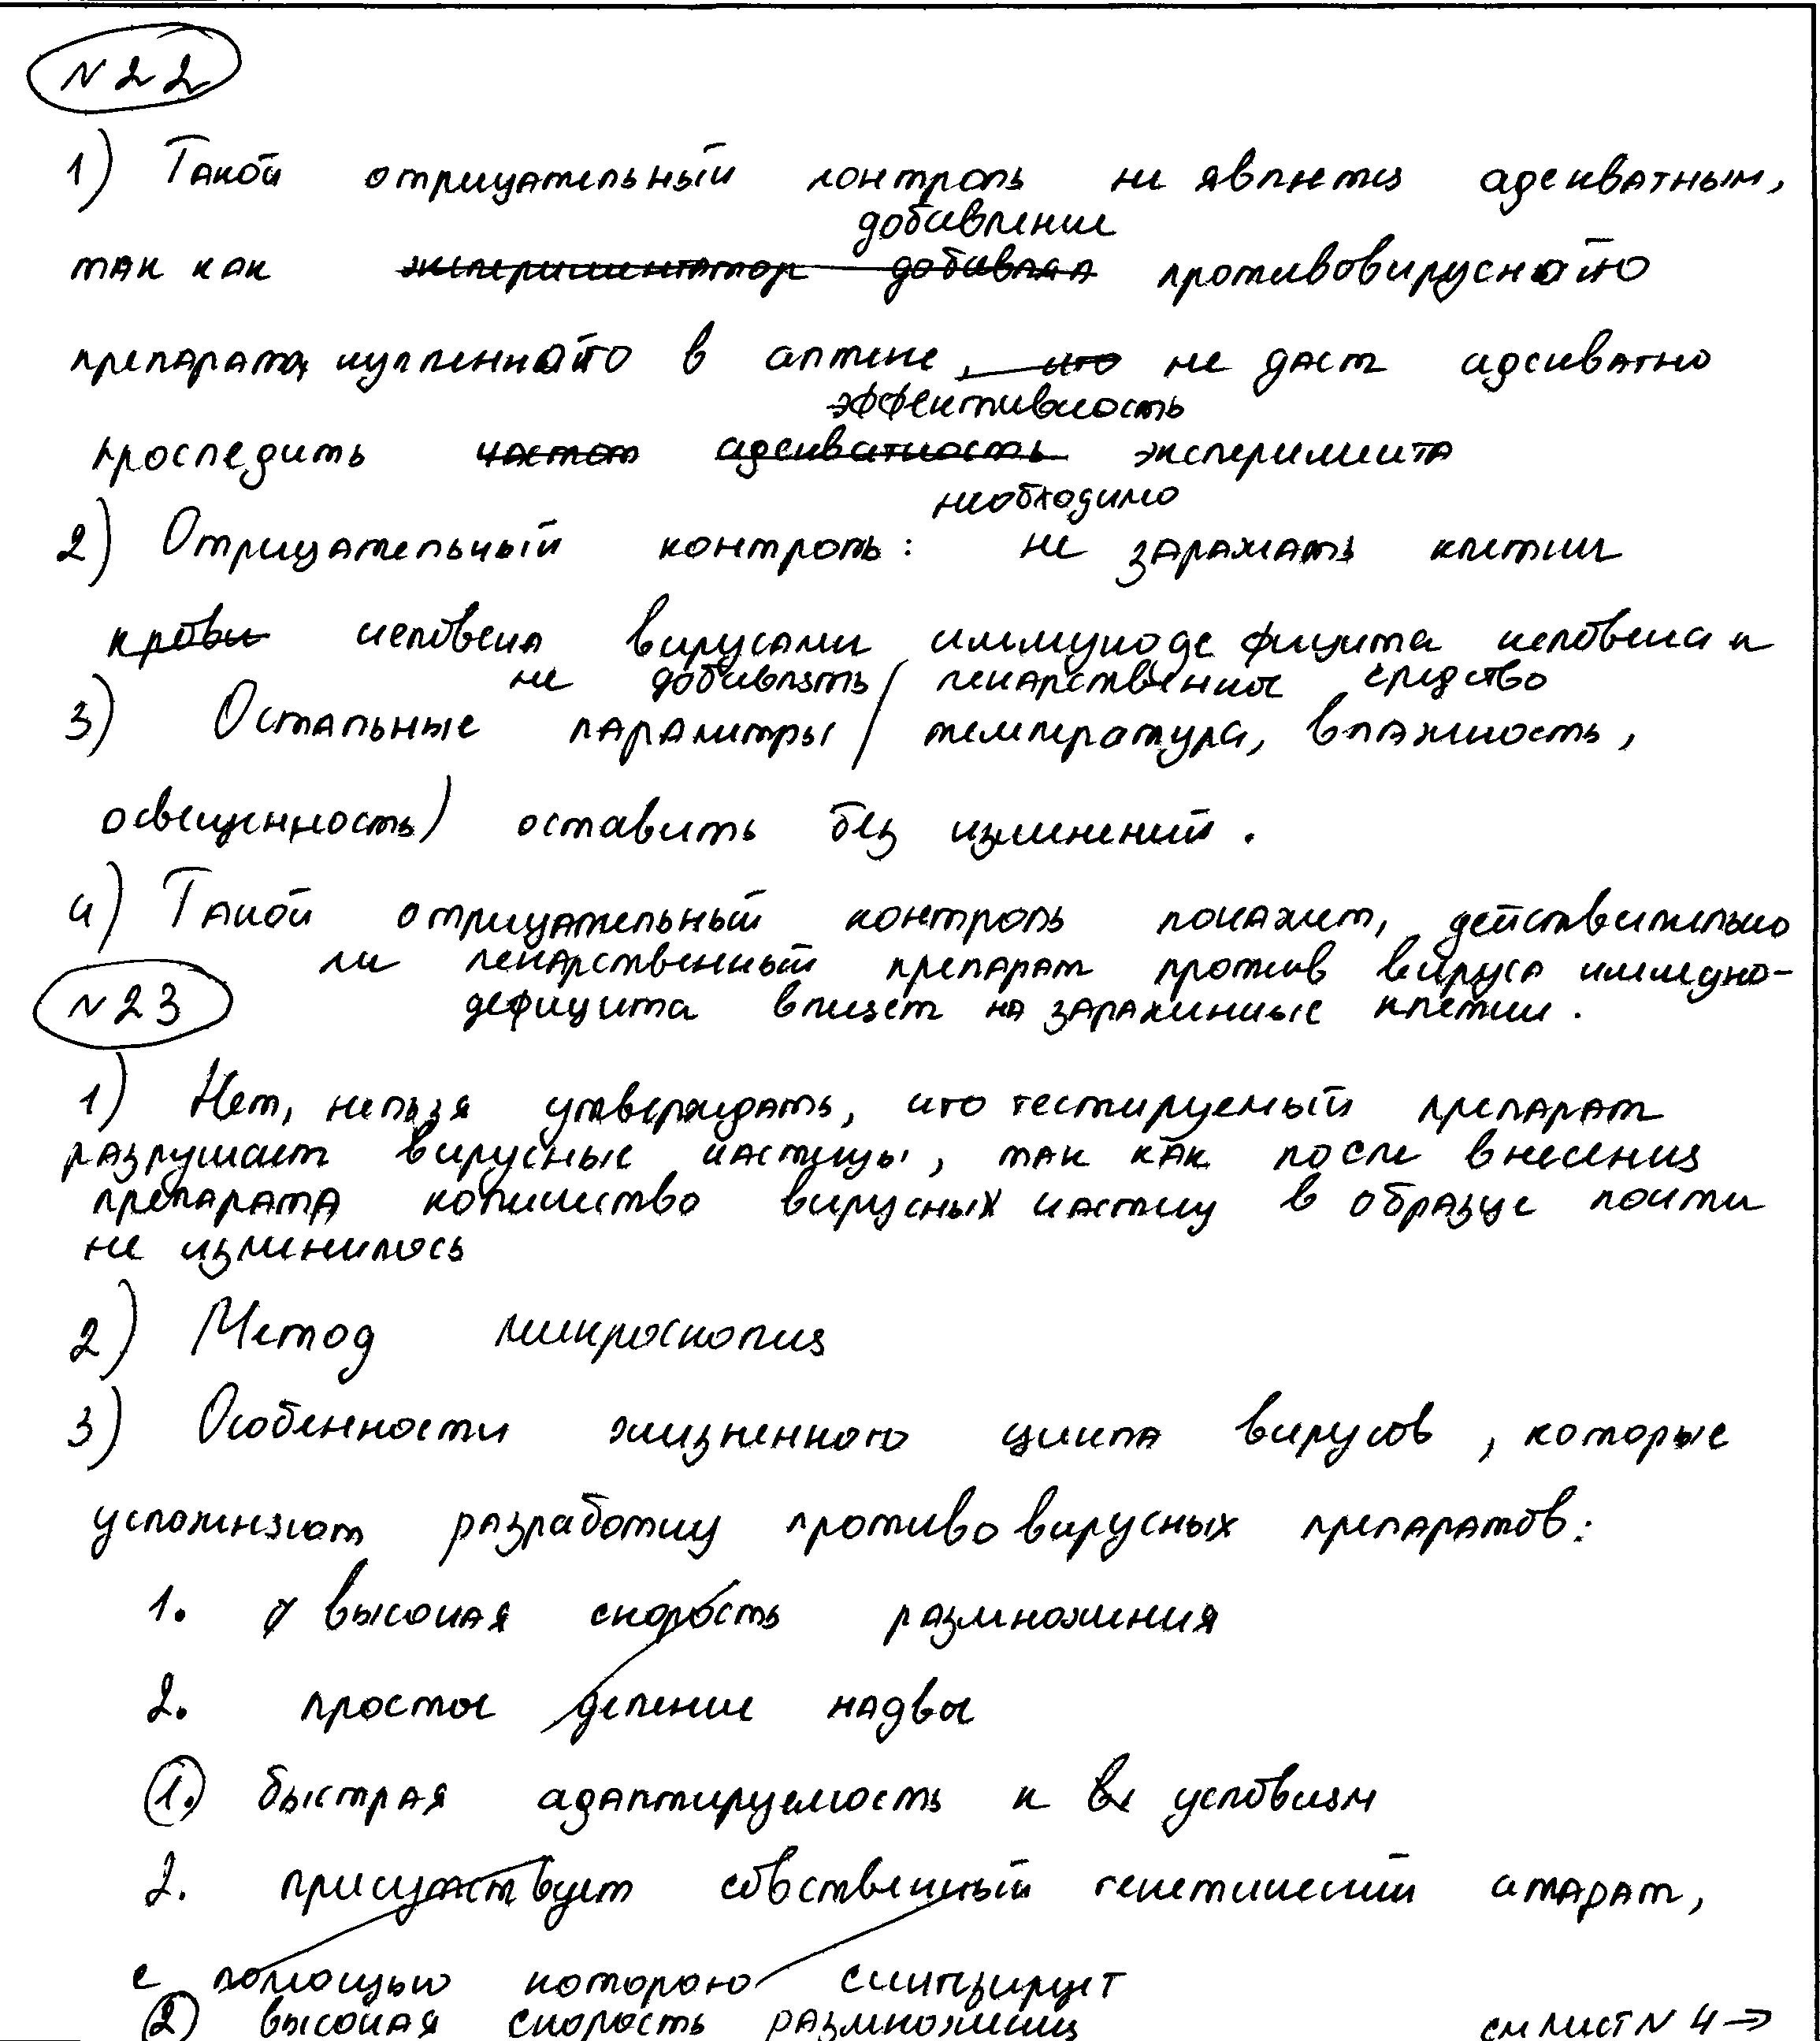 N22
1) Такой отрицательный контроль не является адекватным,
добавление
так как экспериментатор добавлял противовирусного
препарата, купленного в аптеке, что не даст адекватно
эффективность
проследить частот адекватность эксперимента
необходимо
2) Отрицательный контроль: не заражать клетки
крови человека вирусами иммунодефицита человека и
не добавлять лекарственное средство
3) Остальные параметры (температура, влажность,
освещенность) оставить без изменений.
4) Такой отрицательный контроль покажет, действительно
ли лекарственный препарат против вируса иммуно-
N23
дефицита влияет на зараженные клетки.
1) Нет, нельзя утверждать, что тестируемый препарат
разрушает вирусные частицы, так как после внесения
препарата количество вирусных частиц в образце почти
не изменилось
2) Метод микроскопия
3) Особенности жизненного цикла вирусов, которые
усложняют разработку противовирусных препаратов:
1. высокая скорость размножения
2. простое деление надвое
1. быстрая адаптируемость к условиям
2. присутствует собственный генетический апарат,
с помощью которого синтезирует
2) высокая скорость размножения см лист N 4 →